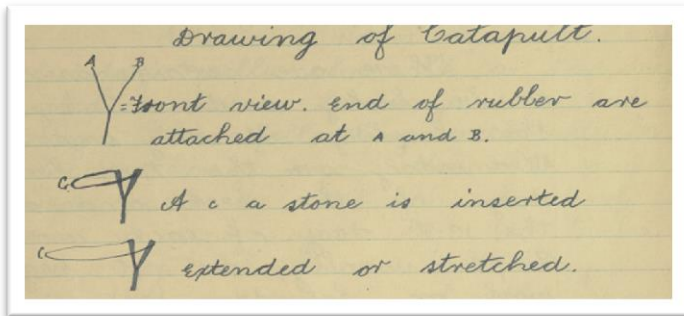 Drawing of Catapult.
A B
= Front view. End of rubber are
attached at A and B.
C
At c a stone is inserted
C
Extended or stretched.